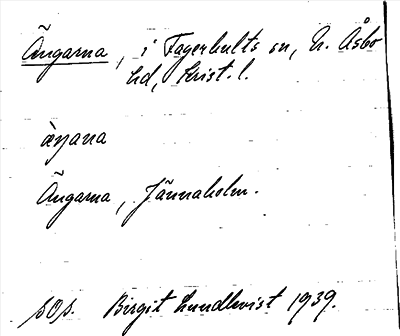 Ängarna, i Fagerhults sn, N. Åsbo
hd, Krist. l.
æŋana
Ängarna, Jännaholm.
Birgit Lundkvist 1939.